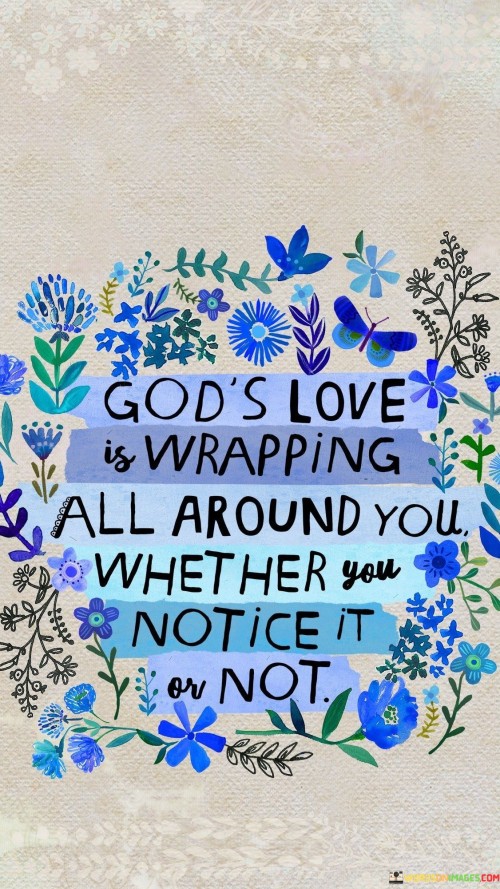 GOD'S LOVE
is WRAPPING
ALL AROUND YOU,
WHETHER you
NOTICE IT
or NOT.